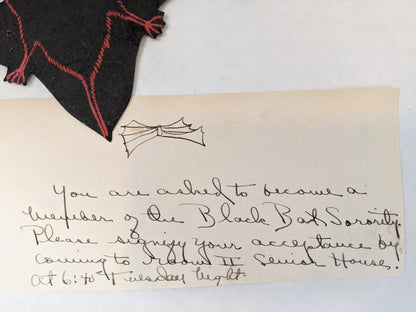 You are asked to become a
member of the Black Bat Sorority.
Please signify your acceptance by
coming to Room II Senior House.
at 6:40 Tuesday night